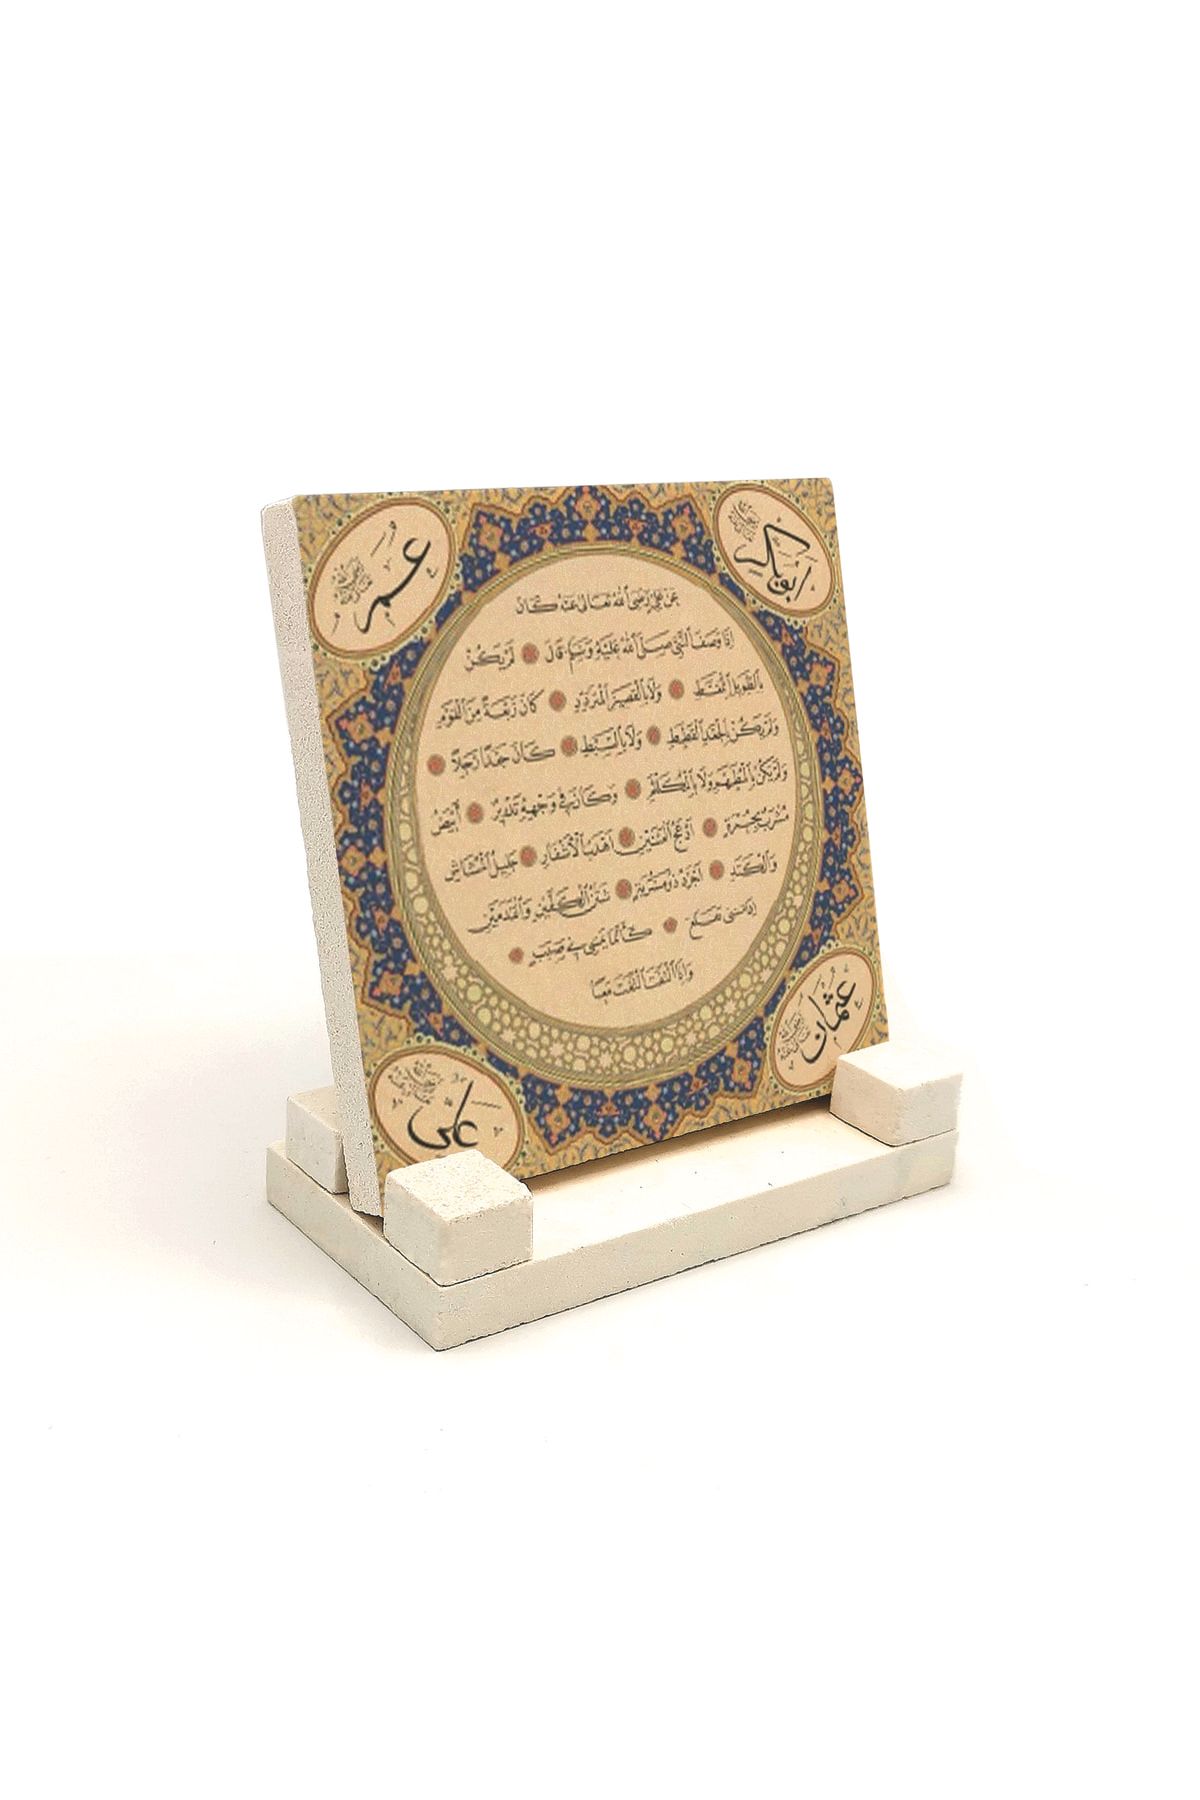 أبو بكر
عمر
عن علي رضي الله تعالى عنه كان
إذا وصف النبي صلى الله عليه وسلم قال لم يكن
بالطويل الممغط ولا بالقصير المتردد كان ربعة من القوم
ولم يكن بالجعد القطط ولا بالسبط كان جعدا رجلا
ولم يكن بالمطهم ولا بالمكلثم وكان في وجهه تدوير أبيض
مشرب بحمرة أدعج العينين أهدب الأشفار جليل المشاش
والكتد أجرد ذو مسربة شثن الكفين والقدمين
إذا مشى تقلع كأنما يمشي في صبب
وإذا التفت التفت معا
عثمان
علي